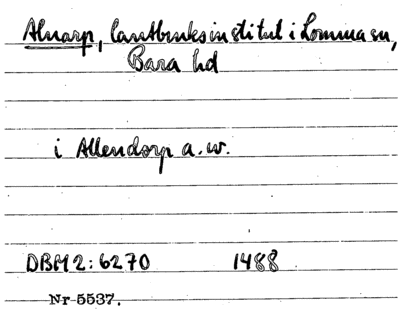 Alnarp, lantbruksinstitut i Lomma sn,
Bara hd
i Allendorp a.w.
DBM2:6270 1488
Nr 5537.